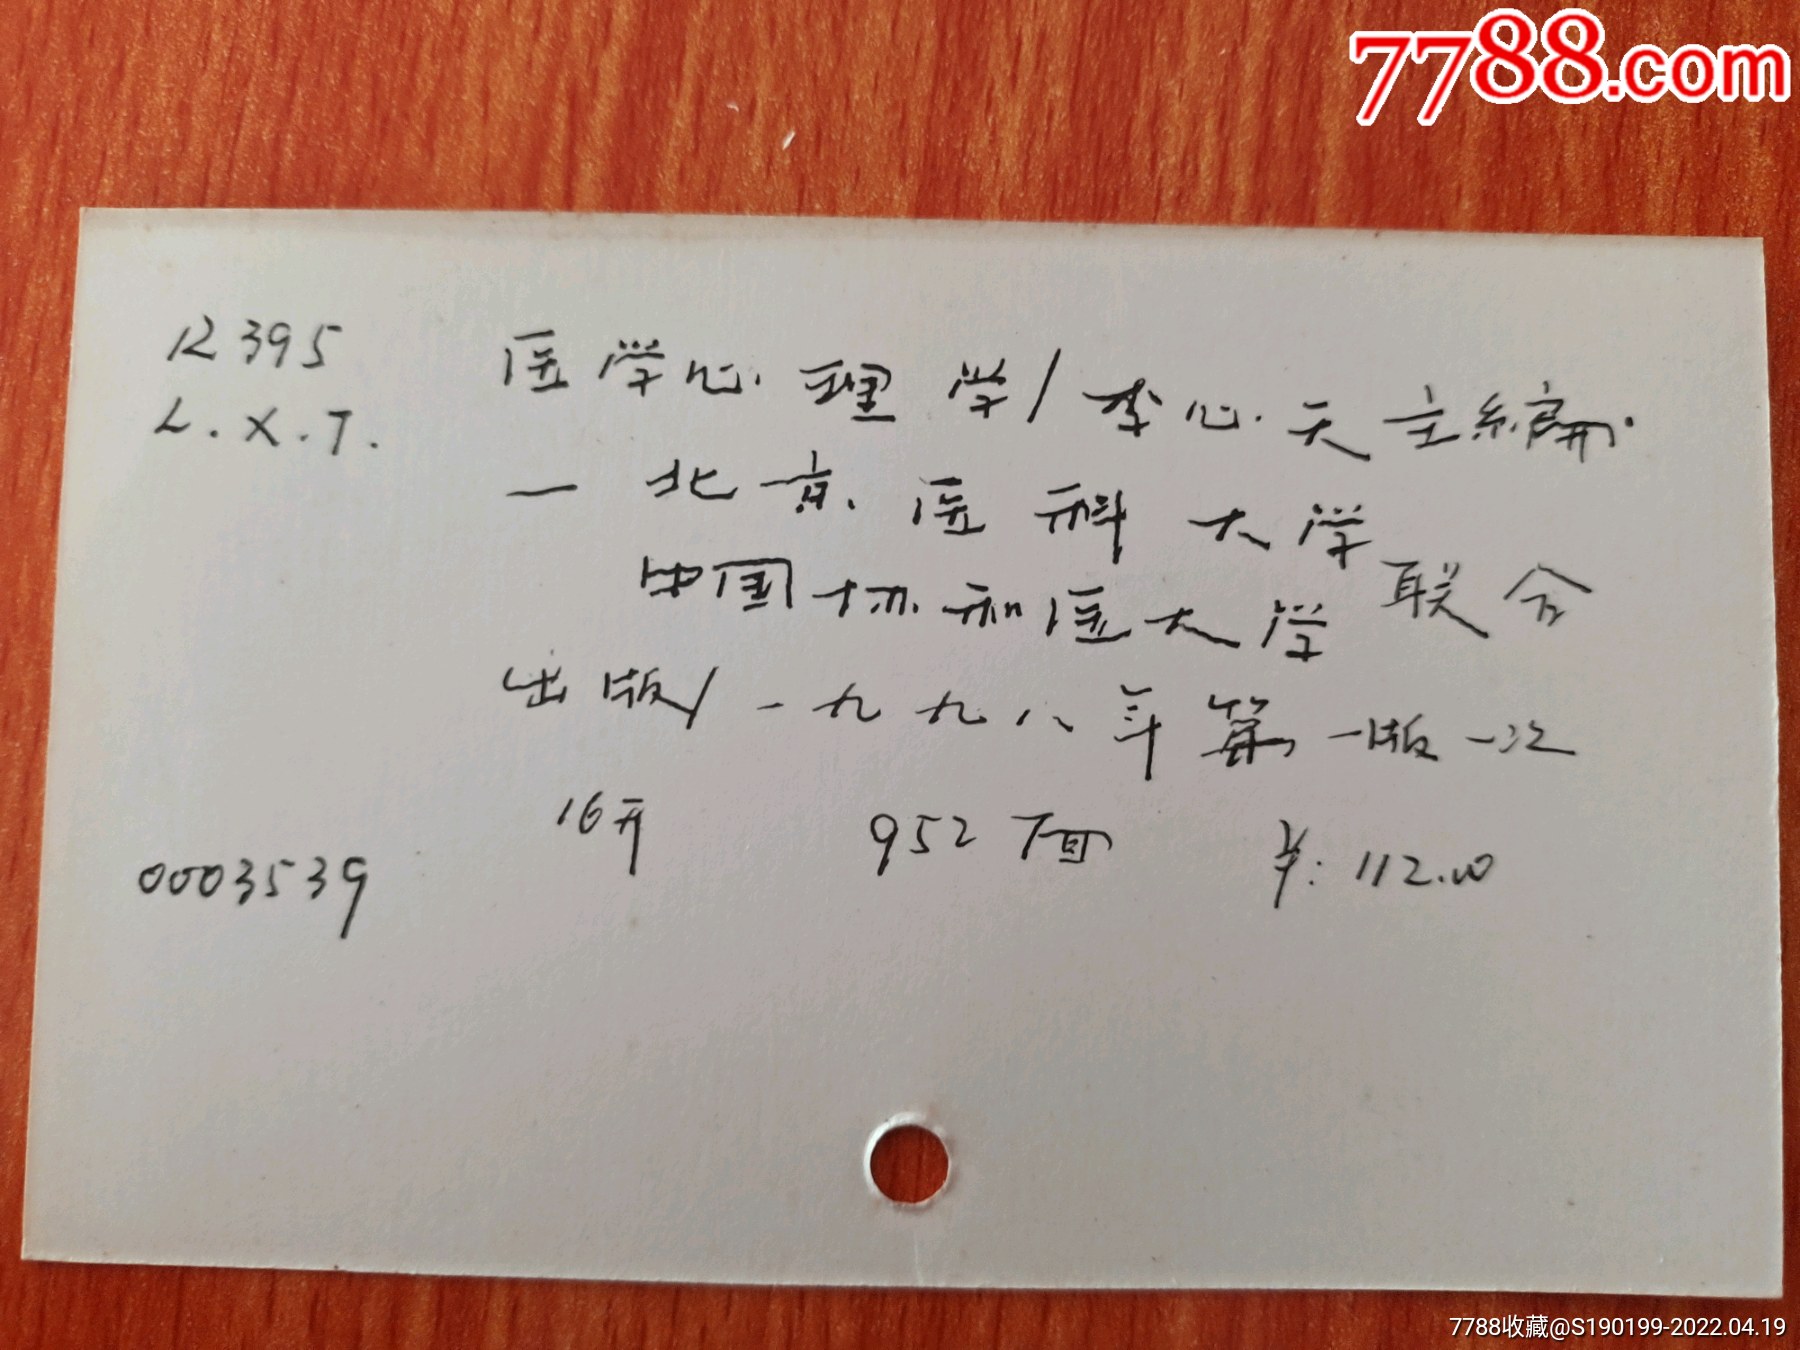 7788.com
R395
L.X.T.
医学心理学/李心天主编.
一北京医科大学
中国协和医大学 联合
出版/一九九八年第一版一次
16开 952面 ¥:112.00
0003539
7788收藏@S190199-2022.04.19